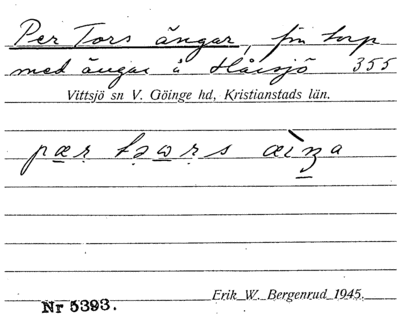 Per Tors ängar, fin torp
med ängar å Hårsjö 355
Vittsjö sn V. Göinge hd, Kristianstads län.
pær təωṛs æ̀iŋa
Erik W. Bergenrud 1945.
Nr 5393.